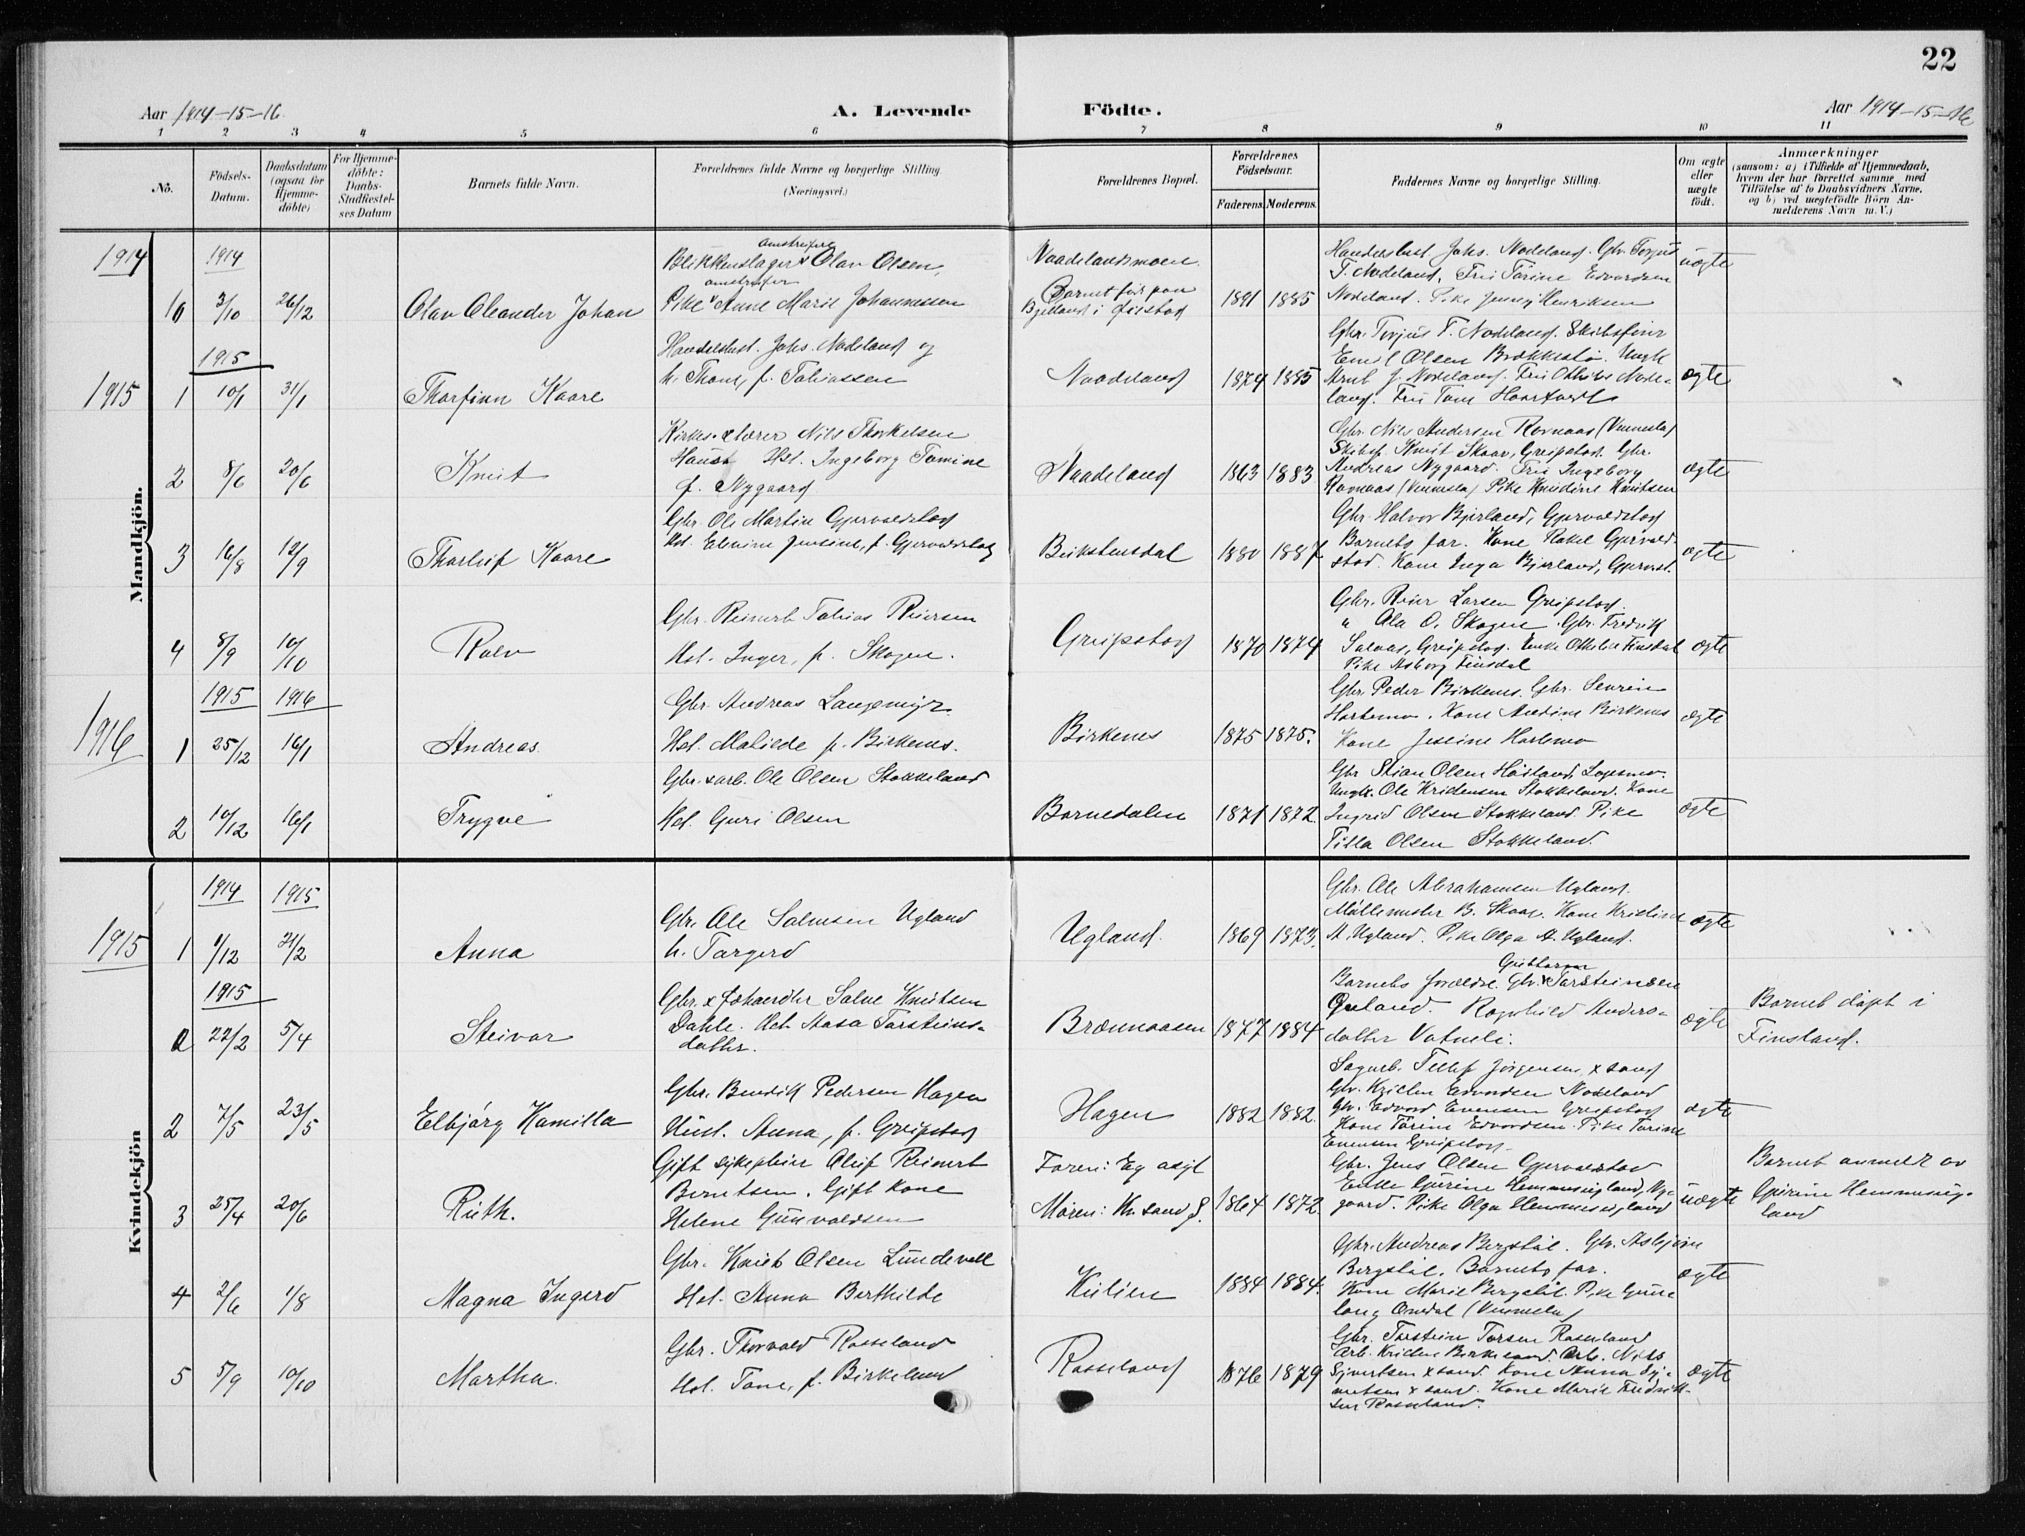 22
Aar 1914-15-16.
A. Levende
Födte.
Aar 1914-15-16
1 2 3 4 5 6 7 8 9 10 11
No.
Födsels-Datum.
Daabsdatum (ogsaa for Hjemme-döbte)
For Hjemme-döbte: Daabs-Stadfæstel-ses Datum
Barnets fulde Navn.
Forældrenes fulde Navne og borgerlige Stilling (Næringsvei.)
Forældrenes Bopæl.
Forældrenes Födselsaar.
Faderens. Moderens.
Faddernes Navne og borgerlige Stilling.
Om ægte eller uægte födt.
Anmærkninger
(saasom: a) i Tilfælde af Hjemmedaab,
hvem der har forrettet samme, med
Tilföielse af to Daabsvidners Navne,
og b) ved uægtefödte Börn An-
melderens Navn m. V.)
Mandkjön.
1914 1914
10 3/10 26/12 Olav Oleander Johan
Blikkenslager Olav Olsen,
Pike Anne Marie Johannessen
Naadelandsmoen
Barnet født paa
1891 1885
Nodeland. Pike Jenny Henriksen
uægte
1915 1915
1 10/1 31/1 Thorfinn Kaare
Handelsbest. Johs. Nodeland og
h. Thone, f. Tobiassen
Naadeland 1874 1885
Gbr. Terjus T. Nodeland. Skibsfører
Emil Olsen
ægte
2 8/6 20/6 Knut
Kirkes. & lærer Nils Thorkelsen
Hst. Ingeborg Tomine
f. Nygaard
Naadeland 1863 1883
Gbr. Nils Andersen Ravnaas (Vennesla)
Andreas Nygaard. Fru Ingeborg
Ravnaas (Vennesla) Pike Knudine Knutsen
ægte
3 16/8 12/9 Thorleif Kaare
Gbr. Ole Martin Gjervoldstad
Beikstensdal 1880 1887
Gbr. Halvor Bjerland, Gjervoldstad
Barnets far. Kone Rakel Gjervold-
stad. Kone Inga Bjerland, Gjervst.
ægte
4 8/9 10/10 Rolv
Gbr. Reinert Tobias Reiersen
Hst. Inger, f. Skogen.
Greipstad 1870 1874
Gbr. Reier Larsen Greipstad.
" Ola O. Skogen. Gbr. Fredrik
Salvas, Greipstad. Enke Othelie Finsdal
Pike Asborg Finsdal
ægte
1916 1915 1916
1 25/12 16/1 Andreas
Gbr. Andreas Langemyr
Hst. Malide f. Birkenes.
Birkenes 1875 1875.
Gbr. Peder Birkenes. Gbr. Severin
Hortemo. Kone Andine Birkenes
Kone Jesine Hortemo
ægte
2 10/12 16/1 Trygve
Gbr. & arb. Ole Olsen Stokkeland
Hst. Guri Olsen
Bornedalen 1871 1872.
Gbr Stian Olsen
Ungk. Ole Kristensen Stokkeland. Kone
Ingrid Olsen Stokkeland. Pike
Tilla Olsen Stokkeland.
ægte
Kvindekjön
1915 1914 1915
1 1/12 21/2 Anna
Gbr. Ole Salvesen Ugland
h. Torgerd
Ugland. 1869 1873.
Gbr. Ole Abrahamsen Ugland.
Møllemester B. Skaar. Kone Kristine
A. Ugland. Pike Olga A. Ugland.
ægte
1915
2 22/2 5/4 Steivor
Gbr. & fehandler Salve Knutsen
Dahle. Hst. Aasa Torsteins-
datter.
Brænnaasen 1877 1884
Barnets forældre. Gbr. Torstein
Ragnhild Anders-
datter Vatneli.
ægte
Barnet døpt i
Finsland.
2 7/5 23/5 Elbjørg Kamilla
Gbr. Bendik Pedersen Hagen
Hust. Anna, f. Greipstad
Hagen 1882 1882.
Sagarb. Tellef Jørgensen, x sand
Gbr. Kristen Edvardsen Nodeland
Gbr. Edvard Evensen Greipstad
Kone Torine Edvardsen. Pike Torine
Evensen Greipstad.
ægte
3 25/4 20/6 Ruth.
Gift sykepleier Oluf Reinert
Berntsen. Gift Kone
Helene Gunvaldsen
Faren: Eg asyl
Moren: Kr. sand S.
1864 1872.
Gbr. Jens Olsen Gjervoldstad
Enke Gurine Hemmingsland, Ny-
gaard. Pike Olga Hemmingsland
uægte
Barnet anmeldt av
Gurine Hemmings-
land
4 2/6 1/8 Magna Ingerd
Gbr. Knut Olsen Lundevoll
Hst. Anna Berthilde
Kulien 1884 1884.
Gbr. Andreas Bergstøl. Gbr. Asbjørn
Bergstøl. Barnets far.
Kone Marie Bergstøl. Pike Gunn-
laug Omdal (Vennesla)
ægte
5 5/9 10/10 Martha.
Gbr. Thorvald Rosseland
Hst. Tone, f. Birkeland
Rosseland 1876 1879
Gbr. Torstein Torsen Rosseland
Arb. Kristen Birkeland. Arb. Nils
Sjurtsen x sand. Kone Anna Sj-
urtsen x sand. Kone Marie Fredrik-
sen Rosseland.
ægte